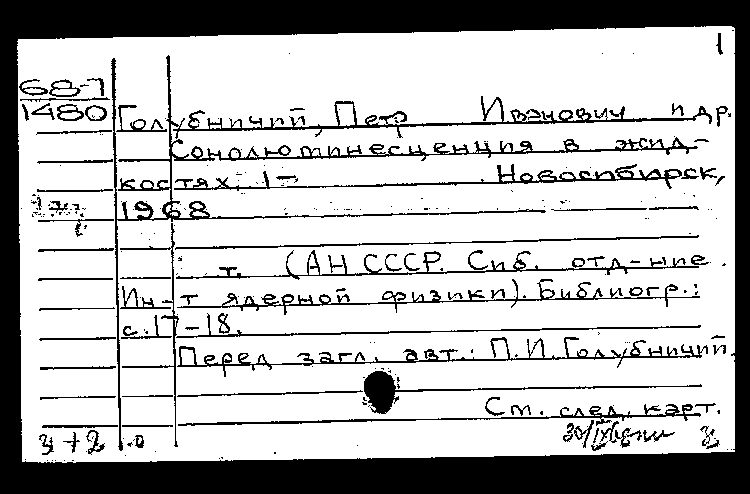 1
68-7
1480
Голубничий, Петр Иванович и др.
Сонолюминесценция в жид-
костях, 1- Новосибирск,
1968
т. (АН СССР. Сиб. отд-ние.
Ин-т ядерной физики). Библиогр.:
с. 17-18.
Перед загл. авт.: П.И.Голубничий.
См. след. карт.